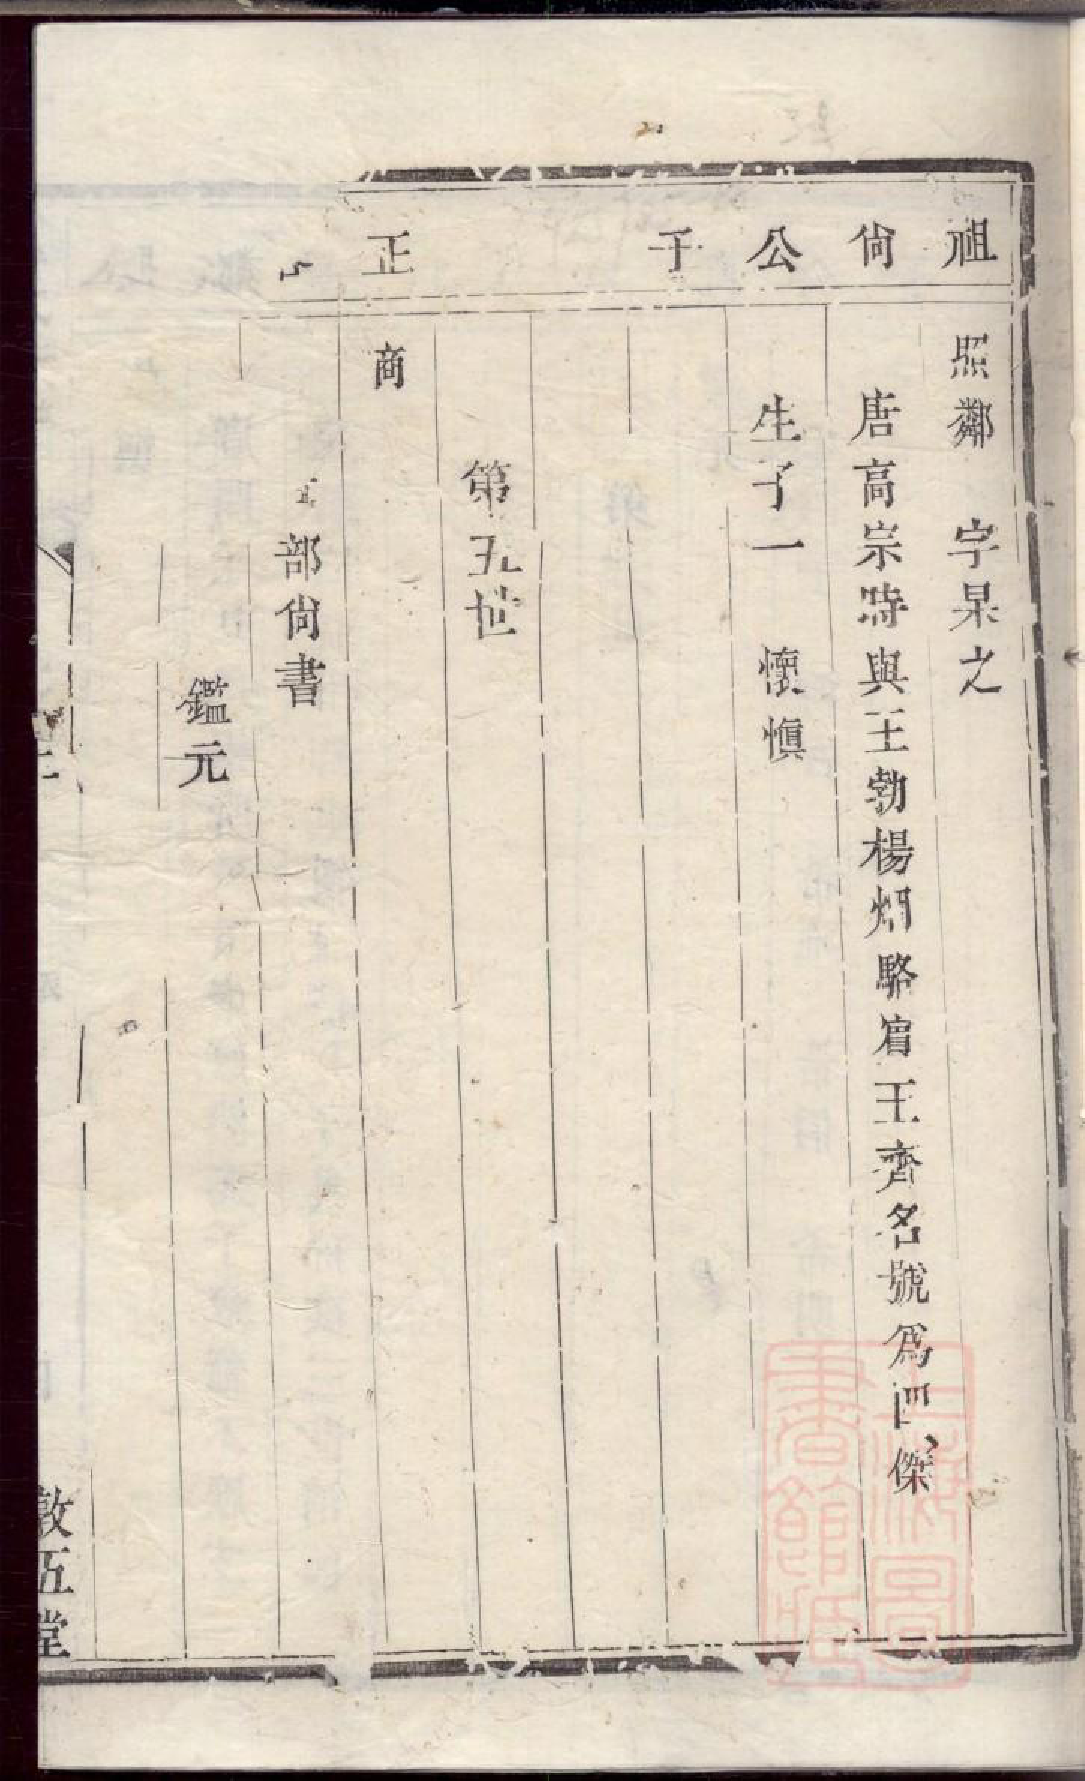 祖尙公子
照鄰 字杲之
唐高宗時與王勃楊烱駱賓王齊名號爲四傑
生子一 懷愼
第五世
正
商
部尙書
鑑元
敦五堂
上海圖
書館藏